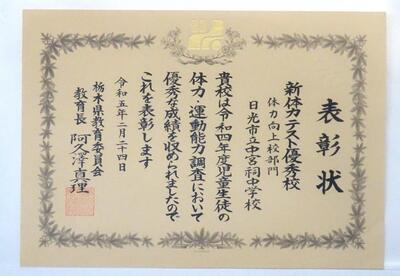 表彰状
新体力テスト優秀校
体力向上校部門
日光市立中宮祠中学校
貴校は令和四年度児童生徒の
体力・運動能力調査において
優秀な成績を収められましたので
これを表彰します
令和五年二月二十四日
栃木県教育委員会
教育長 阿久澤真理